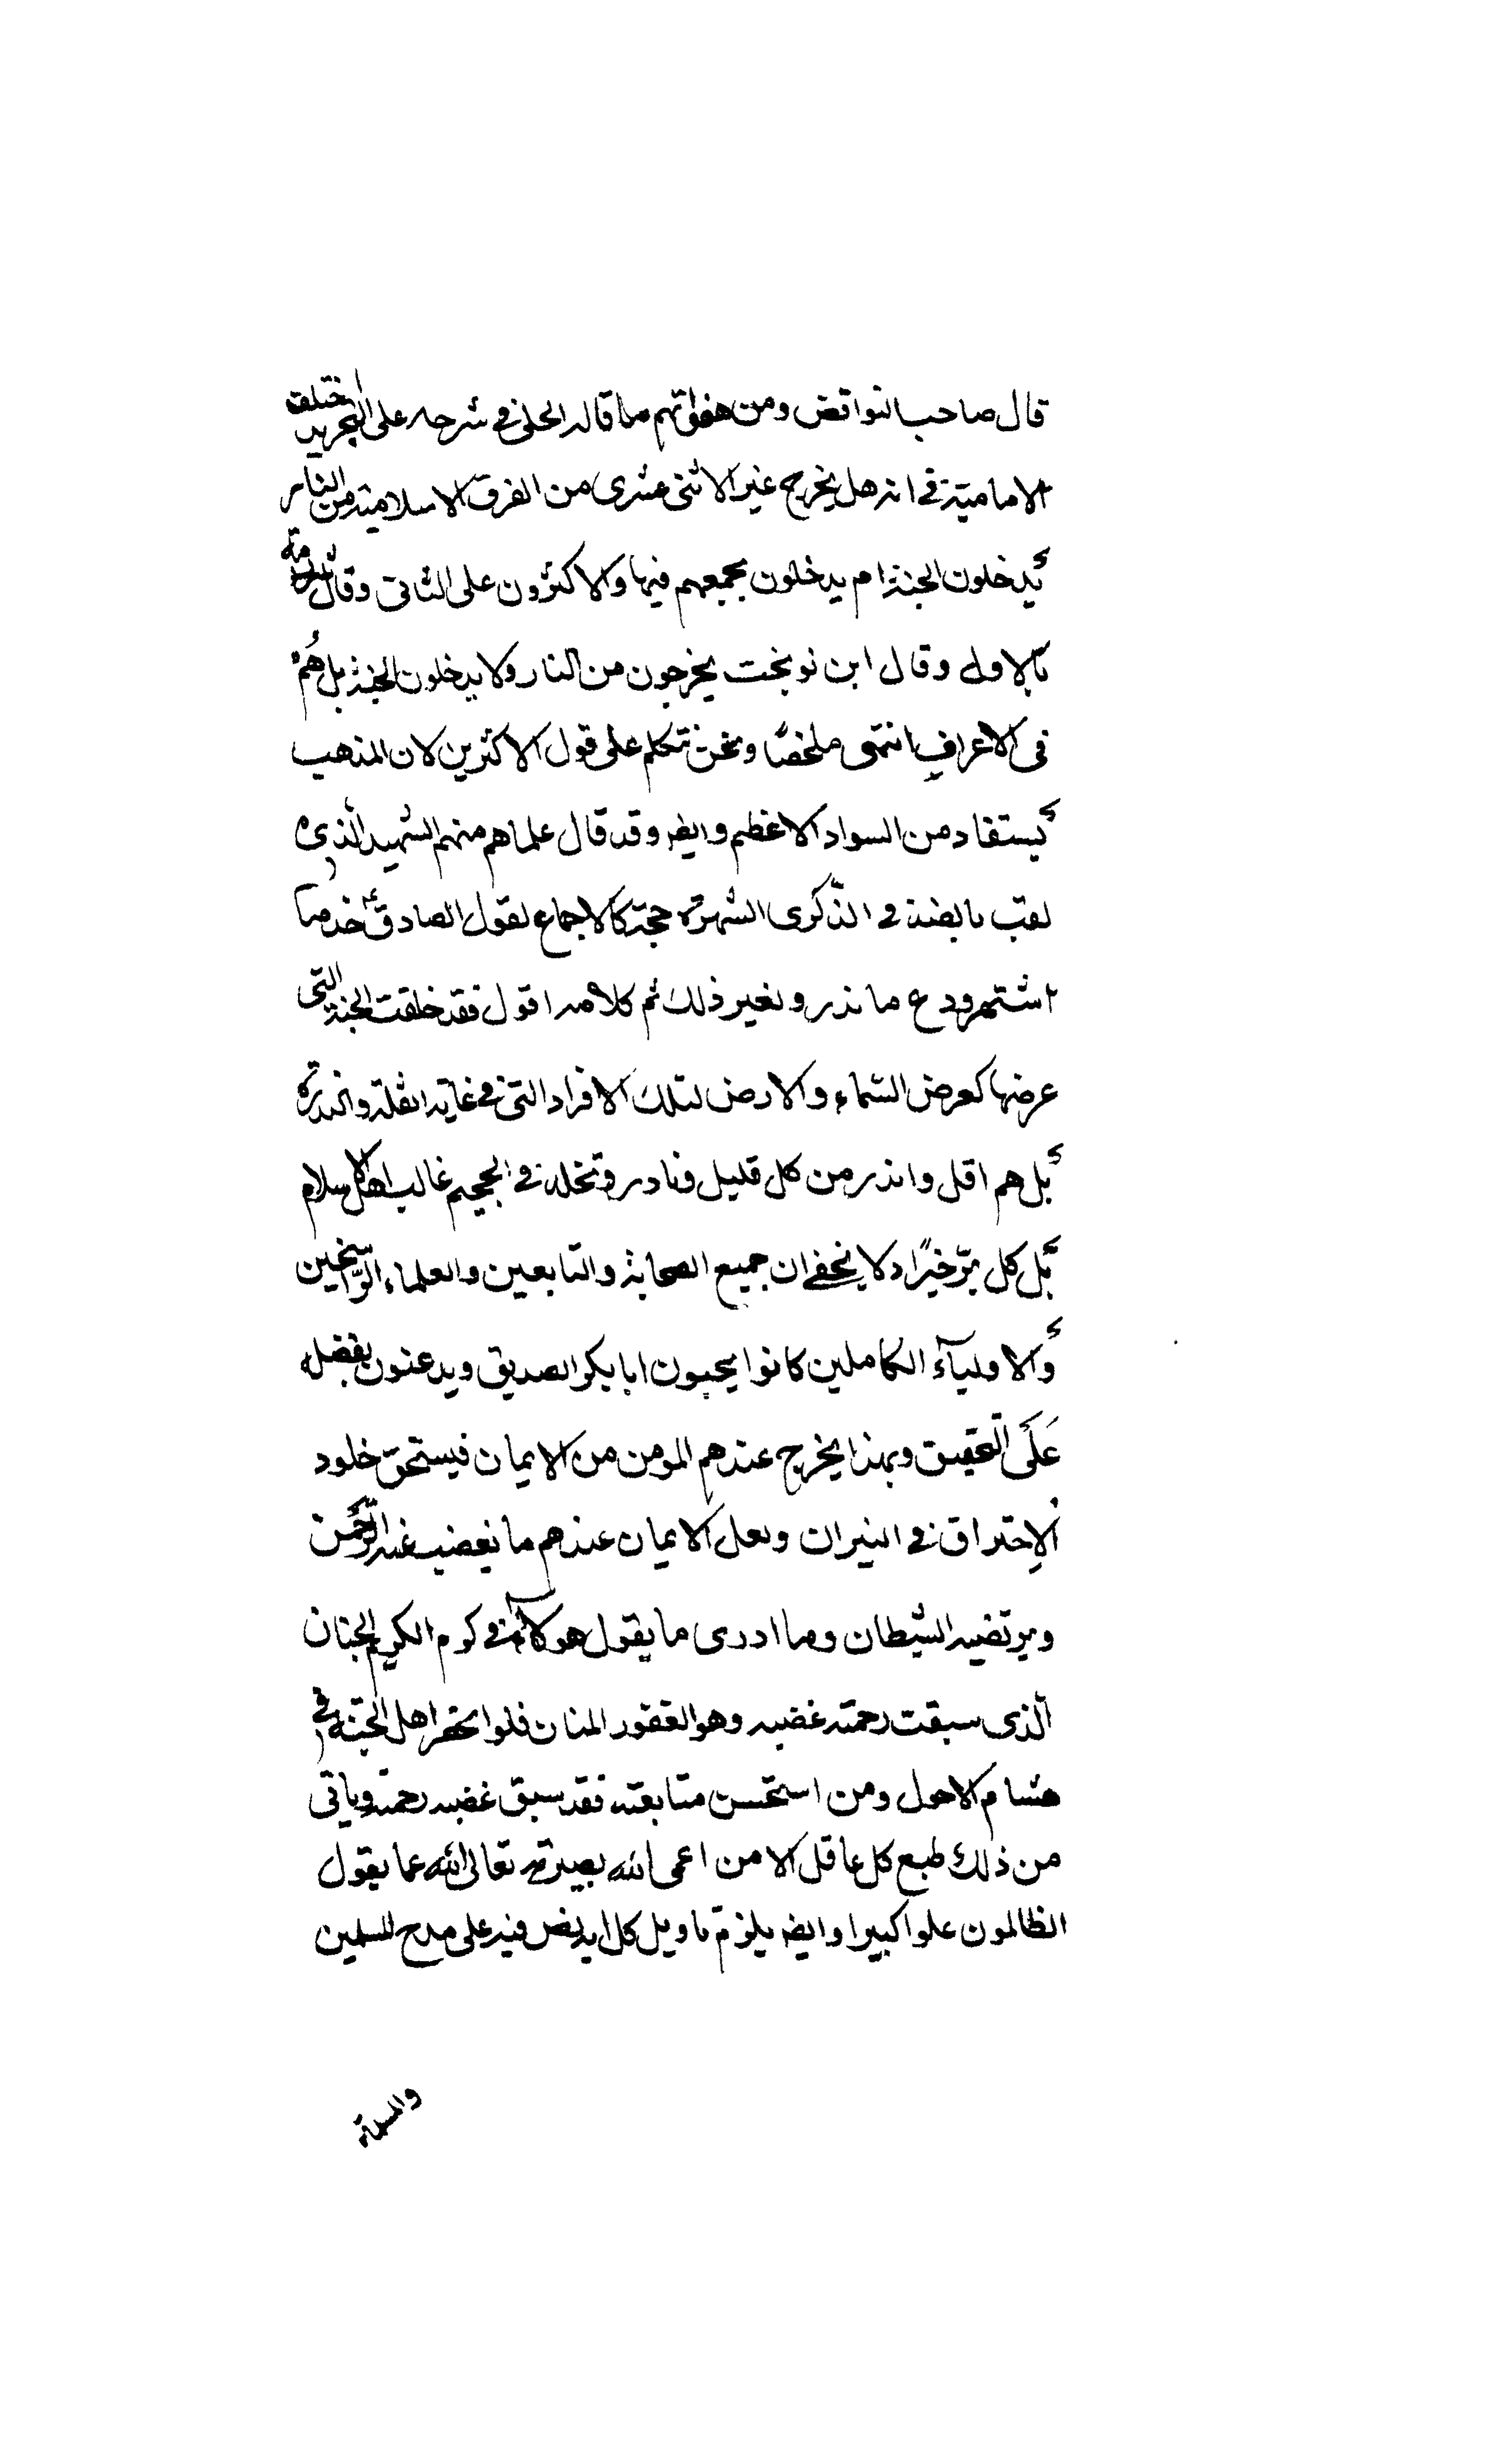 قال صاحب النواقض ومن هفواتهم ما قاله الحلي في شرحه على التجريد اختلف
الامامية في انه هل يخرج غير الاثنى عشرى من الفرق الاسلامية من النار
يدخلون الجنة ام يدخلون بجمعهم فيها والاكثرون على الثاني وقال شرذمة
بالاول وقال ابن نوبخت يخرجون من النار ولا يدخلون الجنة بل هُم
في الاعراف انتهى ملخصًا ونحن نتكلم على قول الاكثرين لان المذهب
يستفاد من السواد الاعظم وايضه وقد قال علماهم منهم الشهيد الّذي
لقب بالضد في الذّكرى الشهرة حجة كالاجماع لقول الصادق ع خذ ما
اشتهر ودع ما نذر ولغير ذلك ثم كلامه اقول فقد خلقت الجنة التي
عرضها كعرض السّماء والارض لتلك الافراد التي في غاية القلة والندرة
بل هم اقل وانذر من كل قليل ونادر وتخلد في الجحيم غالب اهل الاسلام
بل كل برّ خيرًا ولا يخفى ان جميع الصحابة والتابعين والعلماء الرّاسخين
والاوليآء الكاملين كانوا يحبون ابا بكر الصديق ويدعنون بفضله
عَلَى التحقيق وبهذا يخرج عندهم المومن من الايمان فيستحقّ خلود
الاِحتراق في النيران ولعل الايمان عندهم ما يغضب عنه الرّحمن
ويرتضيه الشيطان وما ادرى ما يقول هولآء في كرم الكريم الجنان
الّذى سبقت رحمته غضبه وهو الغفور المنان فلو انحصر اهل الجنّة في
هشام الاحول ومن استحسن متابعته فقد سبق غضبه رحمته ويابى
من ذلك طبع كل عاقل الا من اعمى الله بصيرته تعالى الله عما يقول
الظالمون علوا كبيرا وايضه يلزم تاويل كل اية نص فيه على مدح المسلمين
والمسلمة